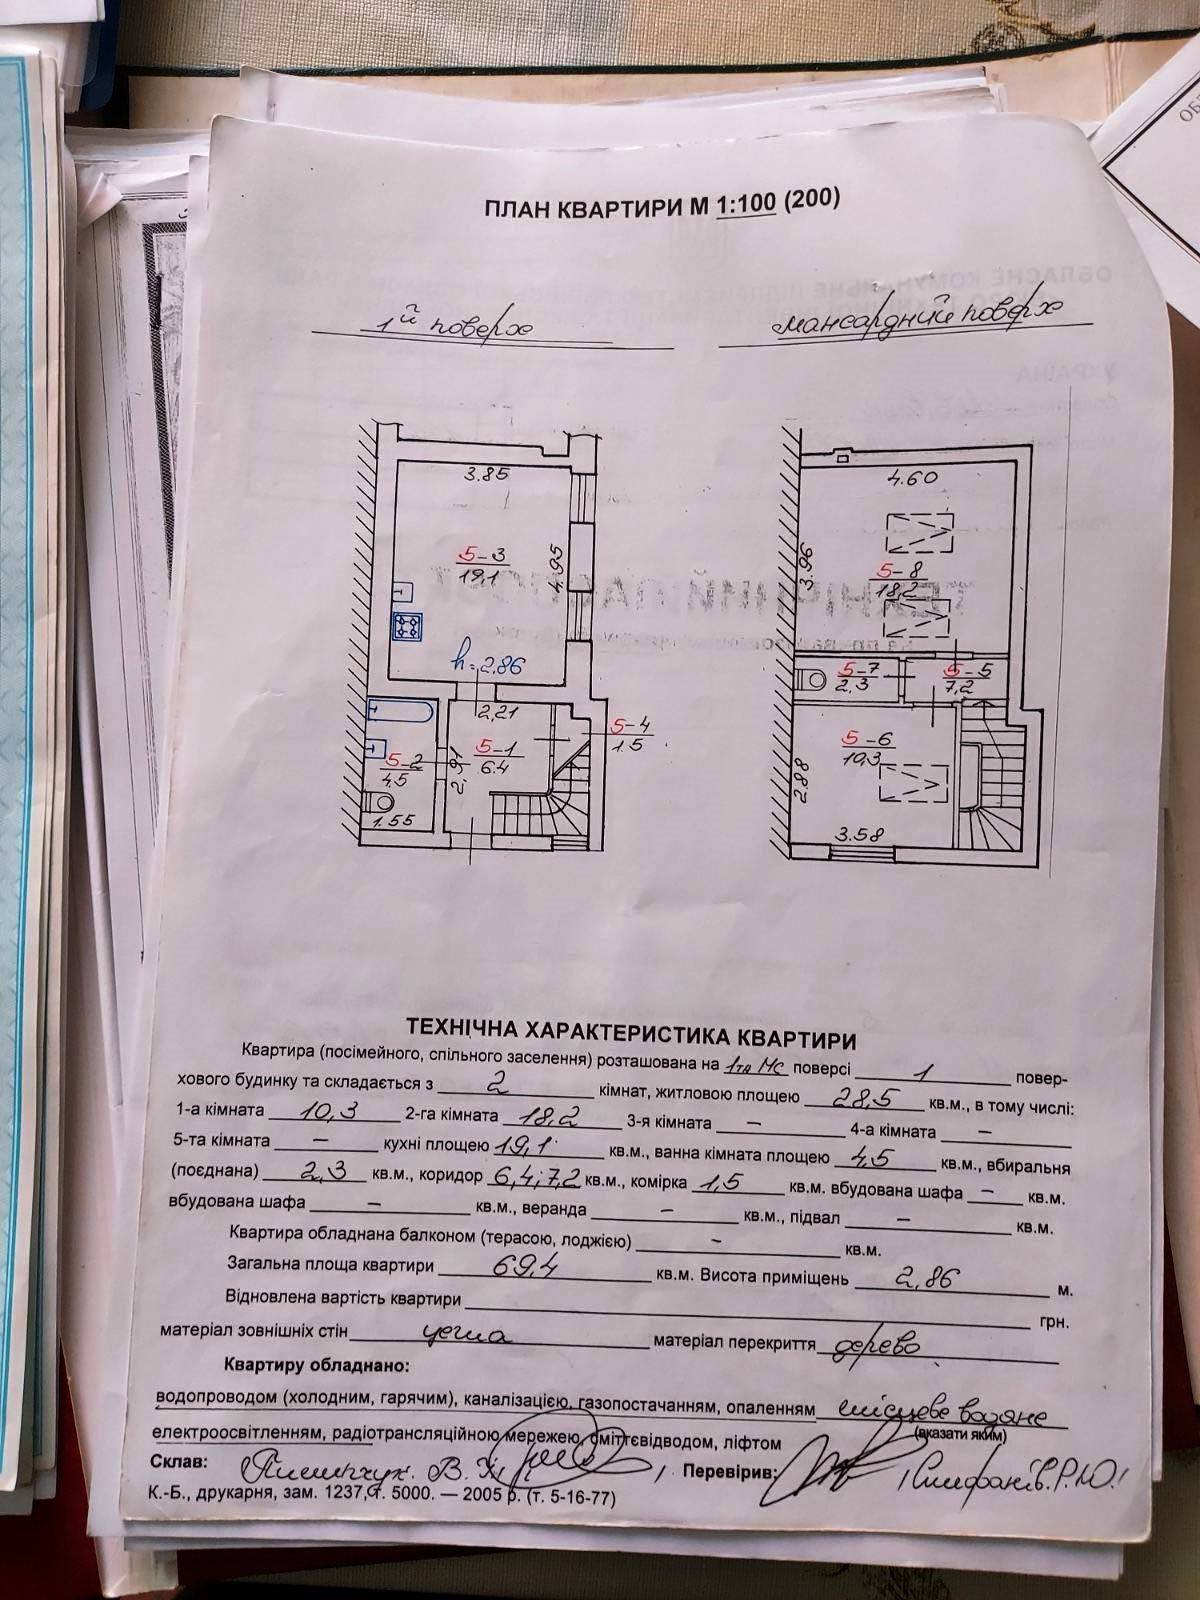 ПЛАН КВАРТИРИ М 1:100 (200)
1й поверх
мансардний поверх
3.85
5-3
19,1
4.95
h=2,86
2,21
5-4
1.5
5-1
6.4
2.91
5-2
4.5
1.55
4.60
3.96
5-8
18,2
5-7
2,3
5-5
7,2
5-6
10,3
2.88
3.58
ТЕХНІЧНА ХАРАКТЕРИСТИКА КВАРТИРИ
Квартира (посімейного, спільного заселення) розташована на 1та МС поверсі 1 повер-
хового будинку та складається з 2 кімнат, житловою площею 28,5 кв.м., в тому числі:
1-а кімната 10,3 2-га кімната 18,2 3-я кімната – 4-а кімната –
5-та кімната – кухні площею 19,1 кв.м., ванна кімната площею 4,5 кв.м., вбиральня
(поєднана) 2,3 кв.м., коридор 6,4; 7,2 кв.м., комірка 1,5 кв.м. вбудована шафа – кв.м.
вбудована шафа – кв.м., веранда – кв.м., підвал – кв.м.
Квартира обладнана балконом (терасою, лоджією) – кв.м.
Загальна площа квартири 69,4 кв.м. Висота приміщень 2,86 м.
Відновлена вартість квартири грн.
матеріал зовнішніх стін цегла матеріал перекриття дерево
Квартиру обладнано:
водопроводом (холодним, гарячим), каналізацією, газопостачанням, опаленням місцеве водяне
(вказати яким)
електроосвітленням, радіотрансляційною мережею, сміттєвідводом, ліфтом
Склав: В. Перевірив: Р.Ю.
К.-Б., друкарня, зам. 1237, т. 5000. — 2005 р. (т. 5-16-77)